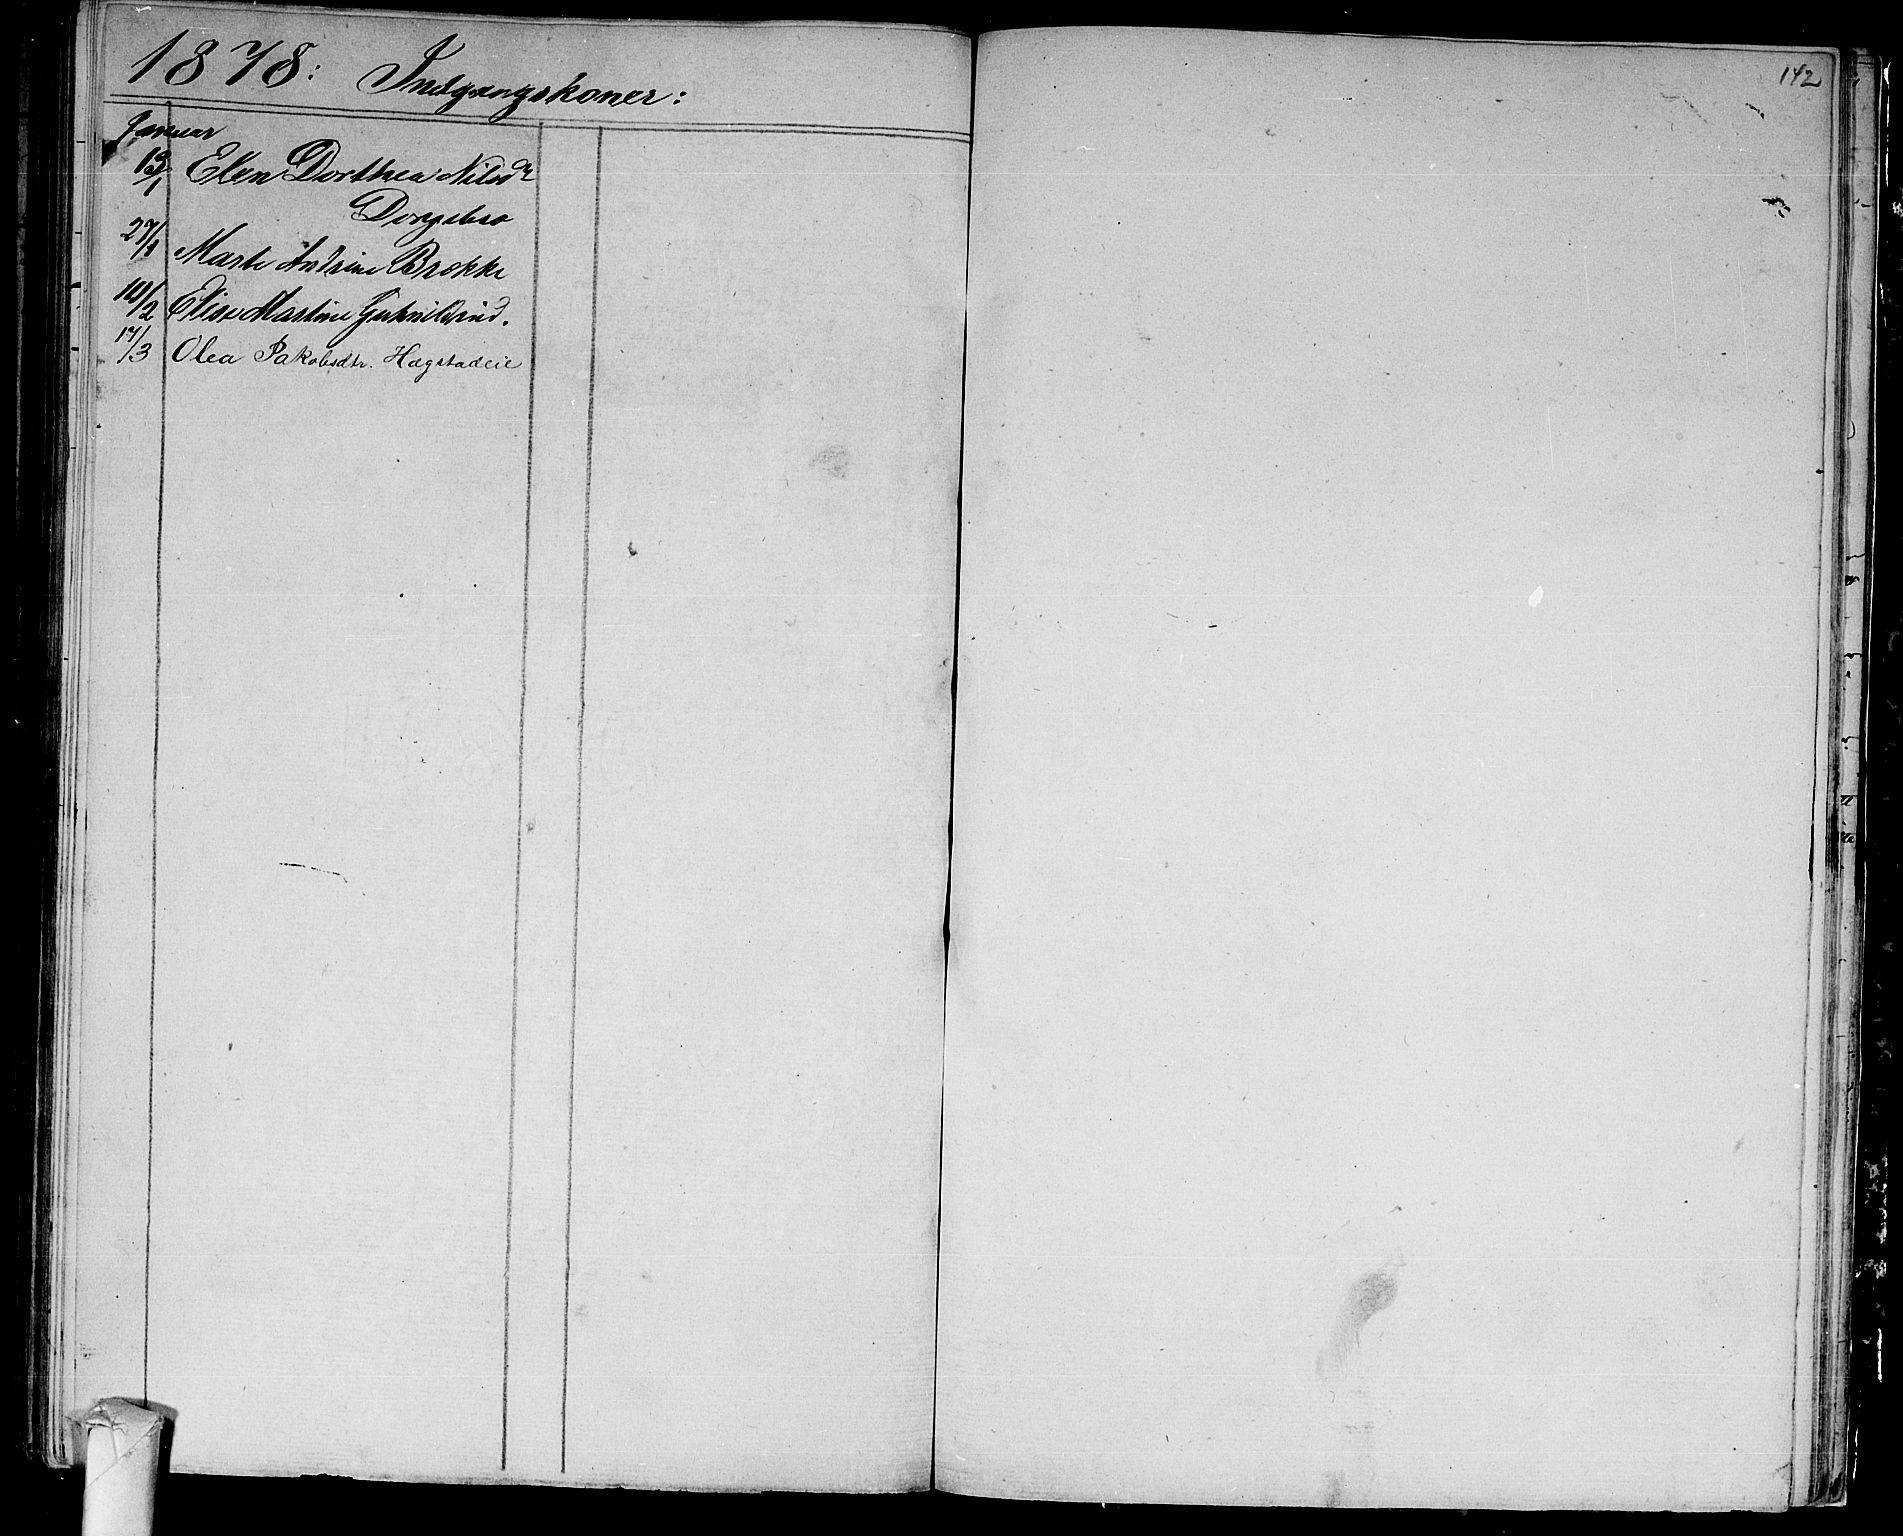 1878: Indgangskoner:
142
Januar
13/1 Elen Dorthea Nilsdr
27/1 Marte Andrine Brække
10/2 Elise Martine
17/3 Olea Jakobsdtr. Hægstadeie